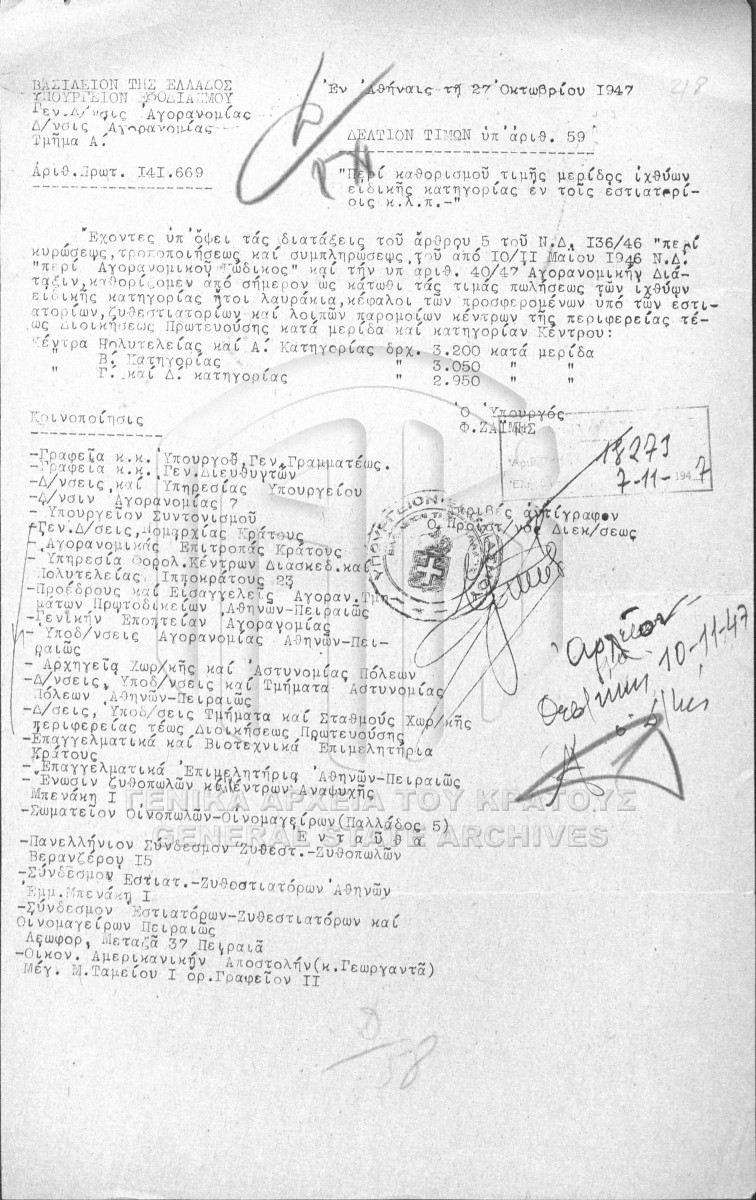 ΒΑΣΙΛΕΙΟΝ ΤΗΣ ΕΛΛΑΔΟΣ
ΥΠΟΥΡΓΕΙΟΝ ΕΦΟΔΙΑΣΜΟΥ
Γεν.Δ/νσις Ἀγορανομίας
Δ/νσις Ἀγορανομίας
Τμῆμα Α.
Ἀριθ.Πρωτ. I4I.669
Ἐν Ἀθήναις τῇ 27 Ὀκτωβρίου I947
218
ΔΕΛΤΙΟΝ ΤΙΜΩΝ ὑπ' ἀριθ. 59
"Περί καθορισμοῦ τιμῆς μερίδος ἰχθύων
εἰδικῆς κατηγορίας ἐν τοῖς ἑστιατορί-
οις κ.λ.π.-"
Ἔχοντες ὑπ' ὄψει τάς διατάξεις τοῦ ἄρθρου 5 τοῦ Ν.Δ. I36/46 "περί
κυρώσεως, τροποποιήσεως καί συμπληρώσεως, τοῦ ἀπό I0/II Μαιου I946 Ν.Δ.
"περί Ἀγορανομικοῦ Κώδικος" καί τήν ὑπ' ἀριθ. 40/47 Ἀγορανομικήν Διά-
ταξιν, καθορίζομεν ἀπό σήμερον ὡς κάτωθι τάς τιμάς πωλήσεως τῶν ἰχθύων
εἰδικῆς κατηγορίας ἤτοι λαυράκια, κέφαλοι τῶν προσφερομένων ὑπό τῶν ἑστι-
ατορίων, ζυθεστιατορίων καί λοιπῶν παρομοίων κέντρων τῆς περιφερείας τέ-
ως Διοικήσεως Πρωτευούσης κατά μερίδα καί κατηγορίαν Κέντρου:
Κέντρα Πολυτελείας καί Α. Κατηγορίας δρχ. 3.200 κατά μερίδα
" Β. Κατηγορίας " 3.050 " "
" Γ. καί Δ. κατηγορίας " 2.950 " "
Ὁ Ὑπουργός
Φ.ΖΑΪΜΗΣ
18273
7-11-1947
Κοινοποίησις
-Γραφεῖα κ.κ. Ὑπουργοῦ, Γεν.Γραμματέως.
-Γραφεῖα κ.κ. Γεν.Διευθυντῶν
-Δ/νσεις καί Ὑπηρεσίας Ὑπουργείου
-Δ/νσιν Ἀγορανομίας 7
- Ὑπουργεῖον Συντονισμοῦ
-Γεν.Δ/σεις, Νομαρχίας Κράτους
- Ἀγορανομικάς Ἐπιτροπάς Κράτους
- Ὑπηρεσία Φορολ.Κέντρων Διασκεδ.καί
Πολυτελείας Ἱπποκράτους 23
-Προέδρους καί Εἰσαγγελεῖς Ἀγοραν.Τμη-
μάτων Πρωτοδικείων Ἀθηνῶν-Πειραιῶς
-Γενικήν Ἐποπτείαν Ἀγορανομίας
- Ὑποδ/νσεις Ἀγορανομίας Ἀθηνῶν-Πει-
ραιῶς
- Ἀρχηγεῖα Χωρ/κῆς καί Ἀστυνομίας Πόλεων
-Δ/νσεις, Ὑποδ/νσεις καί Τμήματα Ἀστυνομίας
Πόλεων Ἀθηνῶν-Πειραιῶς
-Δ/σεις, Ὑποδ/σεις Τμήματα καί Σταθμούς Χωρ/κῆς
περιφερείας τέως Διοικήσεως Πρωτευούσης
-Ἐπαγγελματικά καί Βιοτεχνικά Ἐπιμελητήρια
Κράτους
- Ἐπαγγελματικά Ἐπιμελητήρια Ἀθηνῶν-Πειραιῶς
- Ἕνωσιν ζυθοπωλῶν καί Κέντρων Ἀναψυχῆς
Μπενάκη I
-Σωματεῖον Οἰνοπωλῶν-Οἰνομαγείρων(Παλλάδος 5)
Ἐνταῦθα
-Πανελλήνιον Σύνδεσμον Ζυθεστ.-Ζυθοπωλῶν
Βερανζέρου I5
-Σύνδεσμον Ἑστιατ.-Ζυθεστιατόρων Ἀθηνῶν
Ἐμμ.Μπενάκη I
-Σύνδεσμον Ἑστιατόρων-Ζυθεστιατόρων καί
Οἰνομαγείρων Πειραιῶς
Λεωφορ. Μεταξᾶ 37 Πειραιᾶ
-Οἰκον. Ἀμερικανικήν Ἀποστολήν(κ.Γεωργαντᾶ)
Μέγ. Μ.Ταμείου I ορ.Γραφεῖον II
Ἀκριβές ἀντίγραφον
Ὁ Προϊστ/νος Διεκ/σεως
Ἀρχεῖον
10-11-47
ΓΕΝΙΚΑ ΑΡΧΕΙΑ ΤΟΥ ΚΡΑΤΟΥΣ
GENERAL STATE ARCHIVES
Δ/58